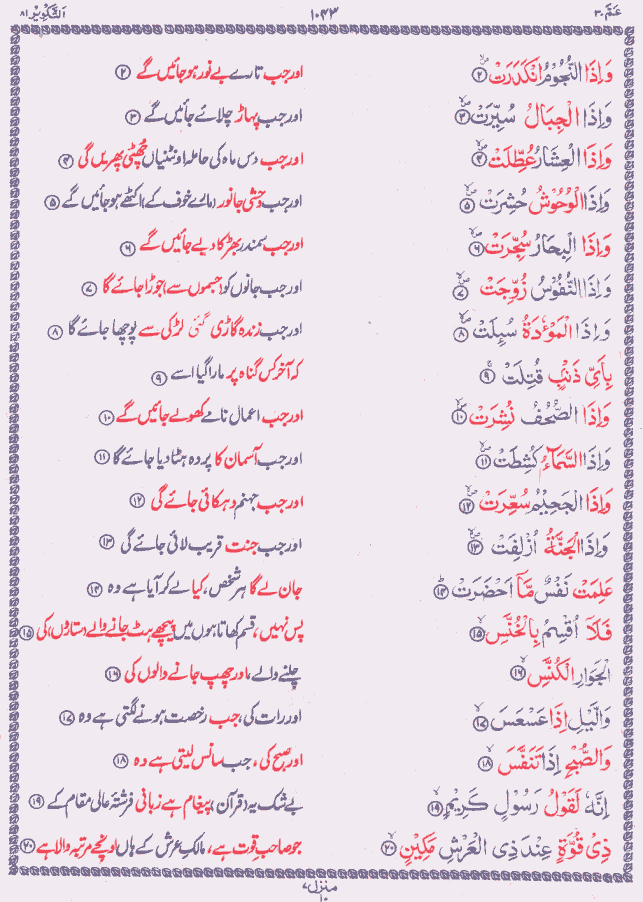 عَمَّ ٣٠ ١٠٤٣ اَلتَّكْوِيْر ٨١
وَاِذَا النُّجُوْمُ انْكَدَرَتْ ۝٢ اور جب تارے بے نور ہو جائیں گے ۝٢
وَاِذَا الْجِبَالُ سُيِّرَتْ ۝٣ اور جب پہاڑ چلائے جائیں گے ۝٣
وَاِذَا الْعِشَارُ عُطِّلَتْ ۝٤ اور جب دس ماہ کی حاملہ اونٹنیاں چُھٹی پھریں گی ۝٤
وَاِذَا الْوُحُوْشُ حُشِرَتْ ۝٥ اور جب وحشی جانور (مارے خوف کے) اکٹھے ہو جائیں گے ۝٥
وَاِذَا الْبِحَارُ سُجِّرَتْ ۝٦ اور جب سمندر بھڑکا دیے جائیں گے ۝٦
وَاِذَا النُّفُوْسُ زُوِّجَتْ ۝٧ اور جب جانوں کو (جسموں سے) جوڑا جائے گا ۝٧
وَاِذَا الْمَوْءٗدَةُ سُىِٕلَتْ ۝٨ اور جب زندہ گاڑی گئی لڑکی سے پوچھا جائے گا ۝٨
بِاَىِّ ذَنْۢبٍ قُتِلَتْ ۝٩ کہ آخر کس گناہ پر مارا گیا اسے ۝٩
وَاِذَا الصُّحُفُ نُشِرَتْ ۝١٠ اور جب اعمال نامے کھولے جائیں گے ۝١٠
وَاِذَا السَّمَآءُ كُشِطَتْ ۝١١ اور جب آسمان کا پردہ ہٹا دیا جائے گا ۝١١
وَاِذَا الْجَحِيْمُ سُعِّرَتْ ۝١٢ اور جب جہنم دہکائی جائے گی ۝١٢
وَاِذَا الْجَنَّةُ اُزْلِفَتْ ۝١٣ اور جب جنت قریب لائی جائے گی ۝١٣
عَلِمَتْ نَفْسٌ مَّاۤ اَحْضَرَتْ ۝١٤ جان لے گا ہر شخص، کیا لے کر آیا ہے وہ ۝١٤
فَلَاۤ اُقْسِمُ بِالْخُنَّسِ ۝١٥ پس نہیں، قسم کھاتا ہوں میں پیچھے ہٹ جانے والے (ستاروں) کی ۝١٥
الْجَوَارِ الْكُنَّسِ ۝١٦ چلنے والے، اور چھپ جانے والوں کی ۝١٦
وَالَّيْلِ اِذَا عَسْعَسَ ۝١٧ اور رات کی، جب رخصت ہونے لگتی ہے وہ ۝١٧
وَالصُّبْحِ اِذَا تَنَفَّسَ ۝١٨ اور صبح کی، جب سانس لیتی ہے وہ ۝١٨
اِنَّهٗ لَقَوْلُ رَسُوْلٍ كَرِيْمٍ ۝١٩ بے شک یہ (قرآن) پیغام ہے زبانی فرشتۂ عالی مقام کے ۝١٩
ذِىْ قُوَّةٍ عِنْدَ ذِى الْعَرْشِ مَكِيْنٍ ۝٢٠ جو صاحبِ قوت ہے، مالکِ عرش کے ہاں اونچے مرتبہ والا ہے ۝٢٠
منزل ٧